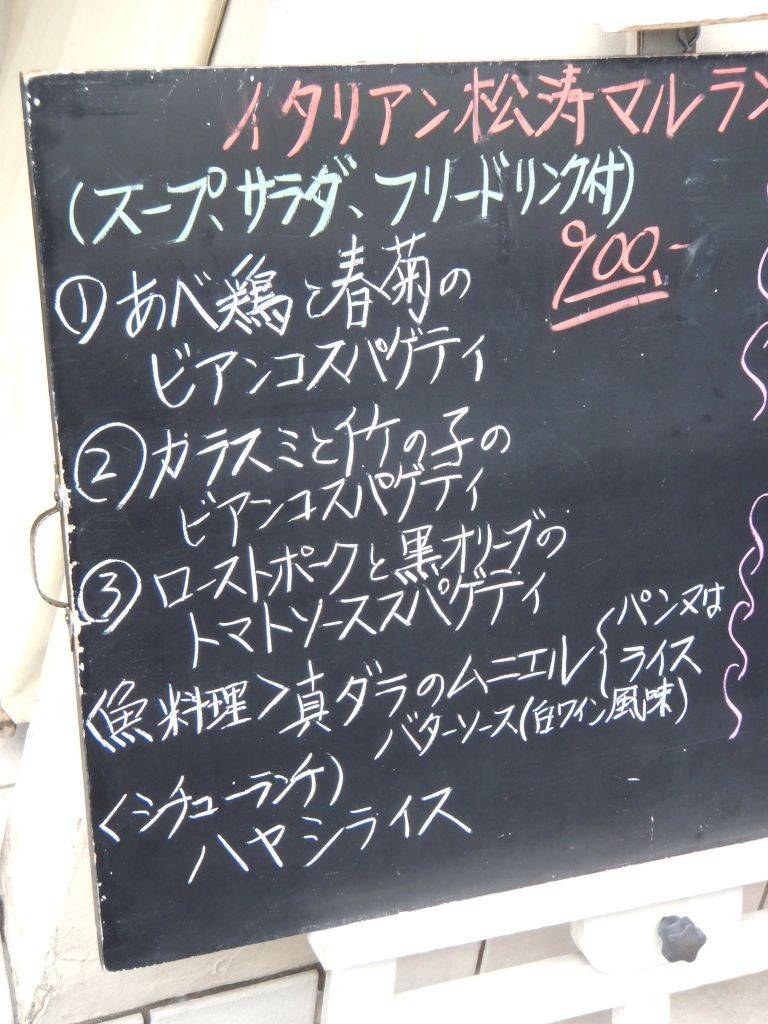 イタリアン松涛マルラン
(スープ、サラダ、フリードリンク付)
900.-
①あべ鶏と春菊の
ビアンコスパゲティ
②カラスミと竹の子の
ビアンコスパゲティ
③ローストポークと黒オリーブの
トマトソーススパゲティ
<魚料理>真ダラのムニエル{パン又は
ライス
バターソース(白ワイン風味)
<シチューランチ)
ハヤシライス